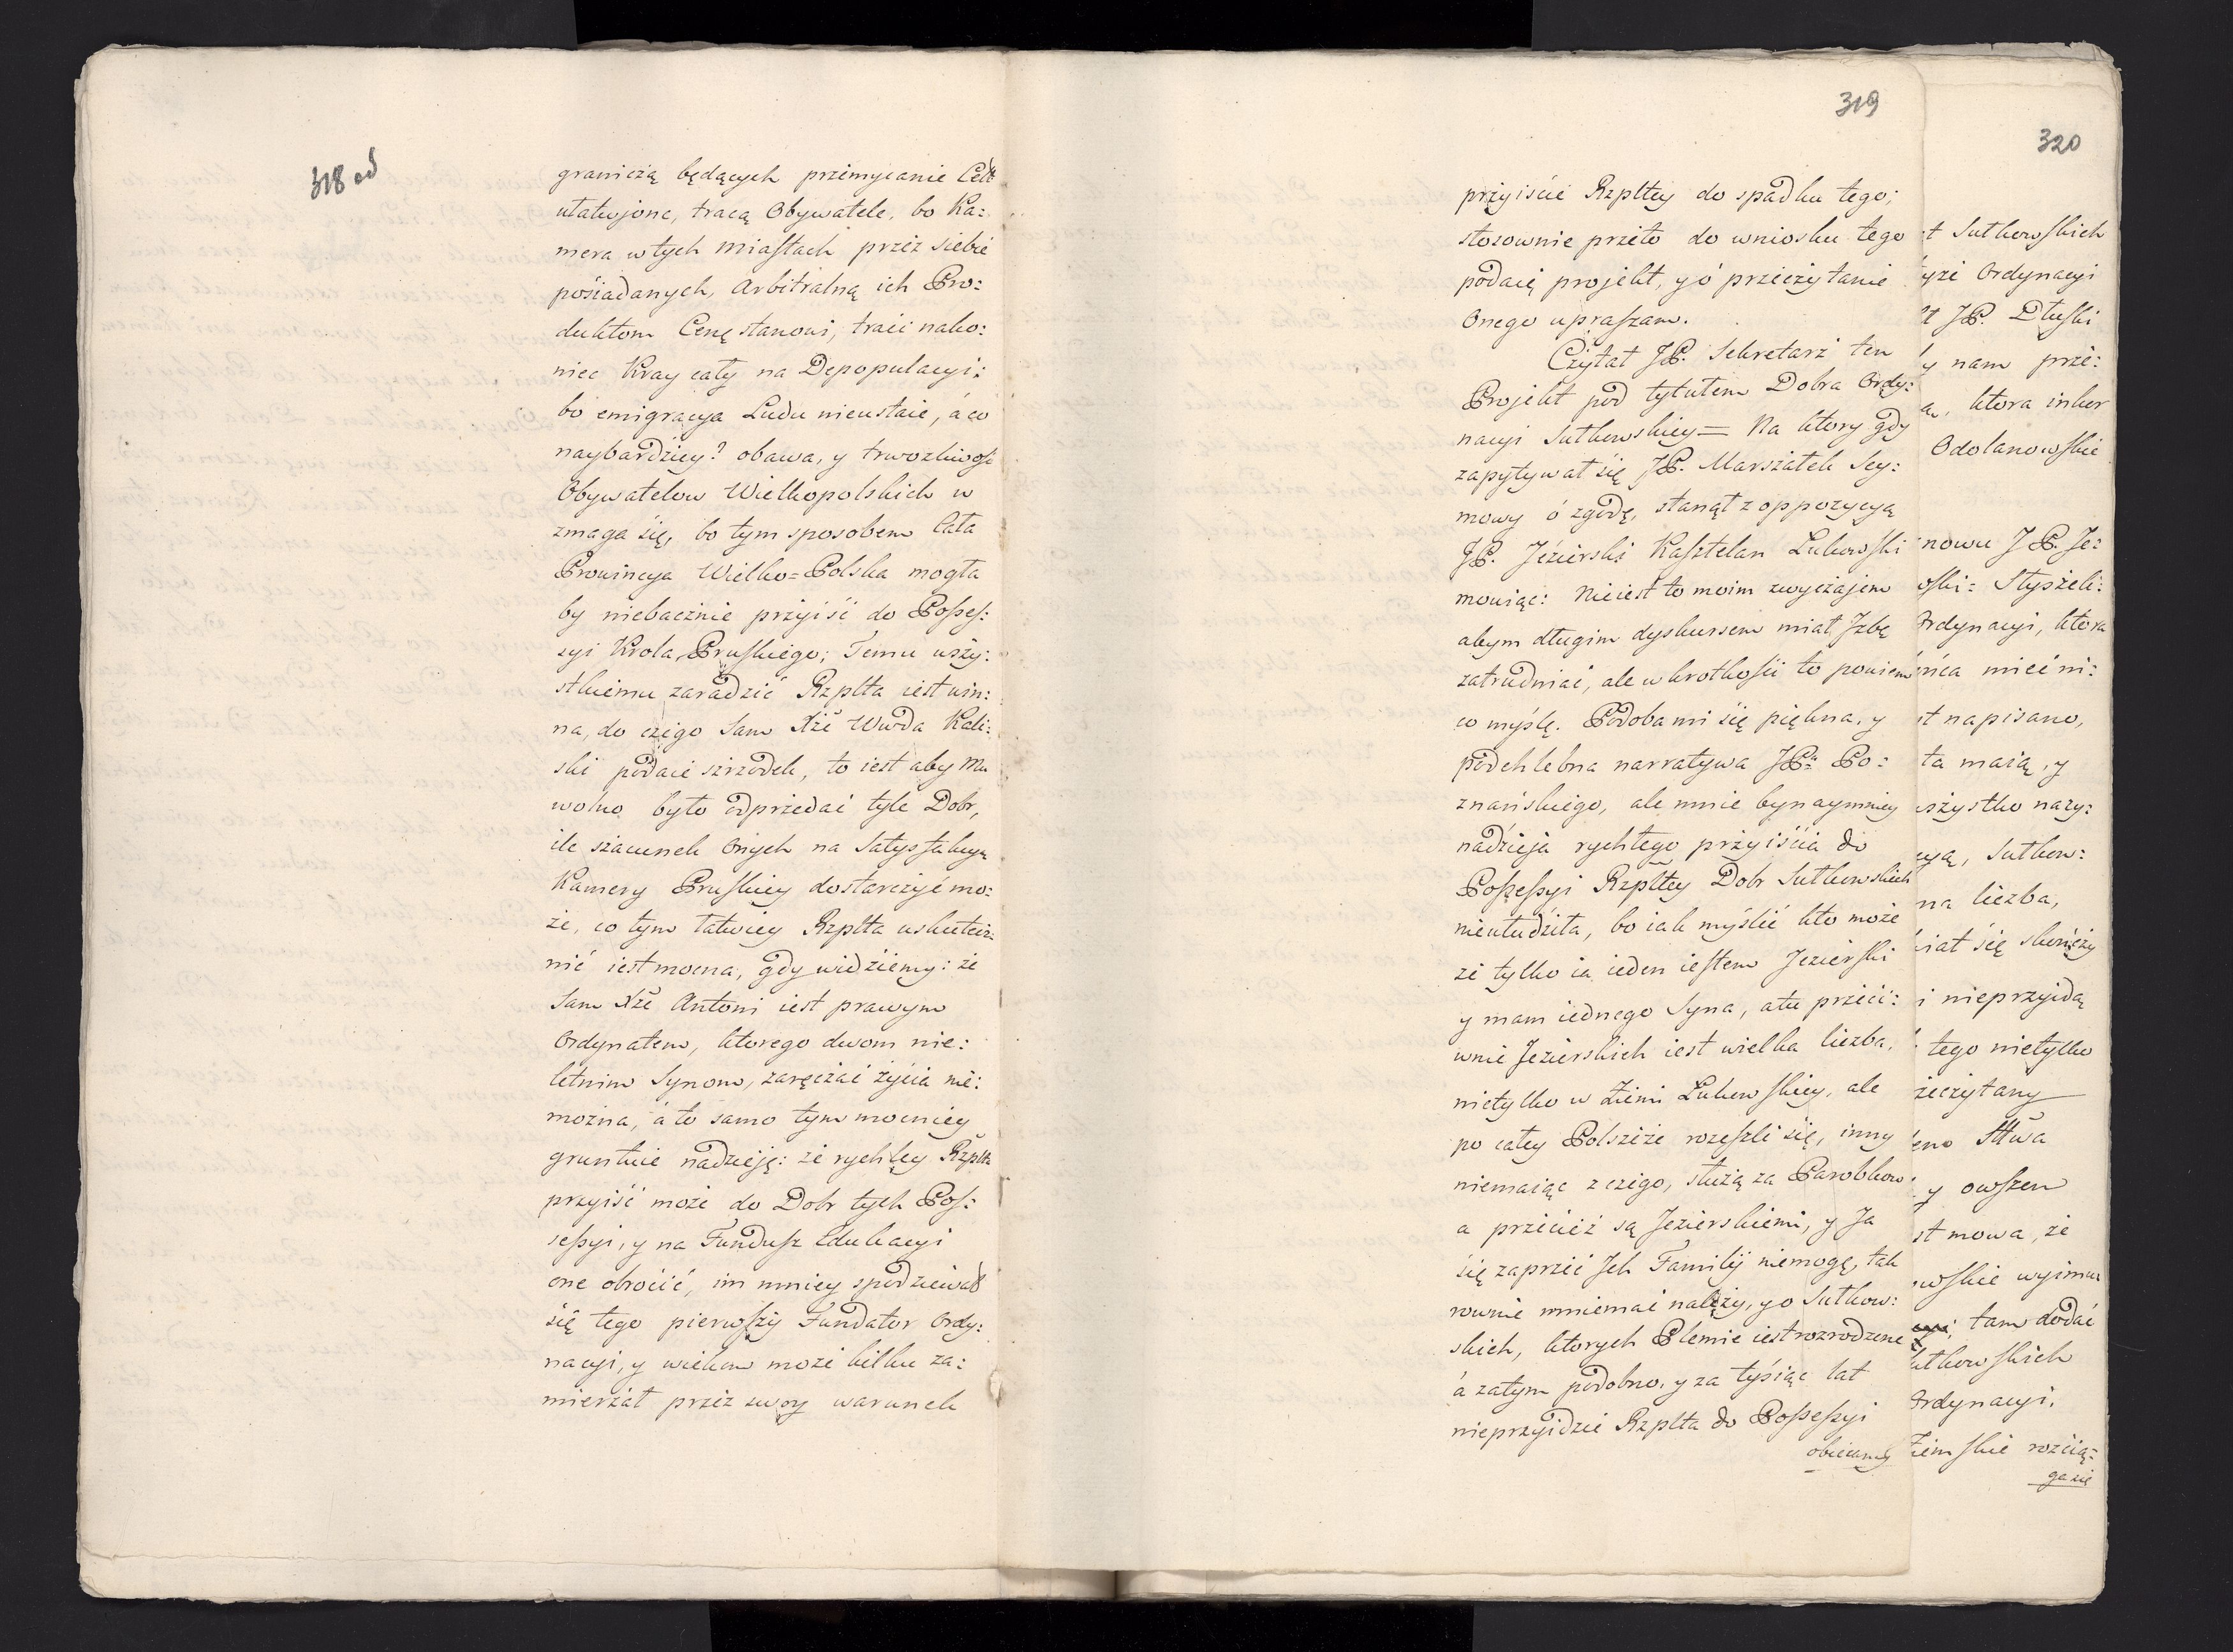 318 od
graniczą będących przemycanie Cell
ułatwione, tracą Obywatele, bo Ka=
mera w tych miastach przez siebie
posiadanych, Arbitralną ich Pro=
duktom Cenę stanowi, traci nako=
niec Kray cały na Depopulacyi:
bo emigracya Ludu nieustaie, á co
naybardziey? obawa, y trwozliwość
Obywatelow Wielkopolskich w
zmaga się, bo tym sposobem Cała
Prowincya Wielko=Polska mogła
by niebacznie przyiść do Possess=
syi Krola Pruskiego; Temu wszy=
stkiemu zaradzić Rzplta iest win=
na, do czego Sam Xże Wwda Kali=
ski podaie szrzodek, to iest aby Mu
wolno było odprzedać tyle Dobr,
ile szacunek Onych na Satysfakcyą
Kamery Pruskiey dostarczyć mo=
że, co tym łatwiey Rzplta uskutecz=
nić iest mocna, gdy widziemy: że
Sam Xże Antoni iest prawym
Ordynatem, ktorego dwom nie=
letnim Synom, zaręczać życia nie=
można, á to samo tym mocniey
gruntuie nadzieję: że rychley Rzplta
przyiść może do Dobr tych Pos=
sessyi, y na Fundusz Edukacyi
one obrocić, im mniey spodziewał
się tego pierwszy Fundator Ordy=
nacyi, y wiekow może kilku za=
mierzał przez swoy warunek
319
przyiście Rzpltey do spadku tego;
stosownie przeto do wniosku tego
podaię projekt, y ó przeczytanie
Onego upraszam.
Czytał JP. Sekretarz ten
Projekt pod tytułem Dobra Ordy=
nacyi Sułkowskiey= Na ktory gdy
zapytywał się JP. Marszałek Sey=
mowy ó zgodę, stanął z oppozycyą
JP. Jezierski Kasztelan Łukowski
mowiąc: Nie iest to moim zwyczajem
abym długim dyskursem miał Jzbę
zatrudniać, ale w krotkości to powiem
co myślę. Podoba mi się piękna, y
podchlebna narratywa JPa Po=
znańskiego, ale mnie bynaymniey
nadzieja rychłego przyiścia do
Possessyi Rzpltey Dobr Sułkowskich
nieułudziła, bo iak myślić kto może
że tylko ia ieden iestem Jezierski
y mam iednego Syna, a tu przeci=
wnie Jezierskich iest wielka liczba,
nietylko w Ziemi Łukowskiey, ale
po całey Polszcze rozeszli się, inny
niemaiąc z czego, służą za Parobkow
a przecież są Jezierskiemi, y Ja
się zaprzeć Jch Familij niemogę, tak
rownie mniemać należy, y o Sułkow=
skich, ktorych Plemie iest rozrodzene
á zatym podobno, y za tysiąc lat
nieprzyidzie Rzplta do Possessyi
obiecaney
320
t Sułkowskich
yzi Ordynacyi
JP. Dłuski
y nam prze=
ktora inkor
Odolanowskie
nowu JP. Je=
ski= Słyszeli=
Ordynacyi, ktora
ńca mieć ni=
st napisano,
ta maią, y
wszystko nazy=
cyą, Sułkow=
na liczba,
iał się skończy
i nieprzyidą
tego nietylko
zeczytany
eno Sttwa
y owszem
st mowa, że
owskie wyimu
tam dodać
Sułkowskich
Ordynacyi.
Ziemskie rozcią=
ga się